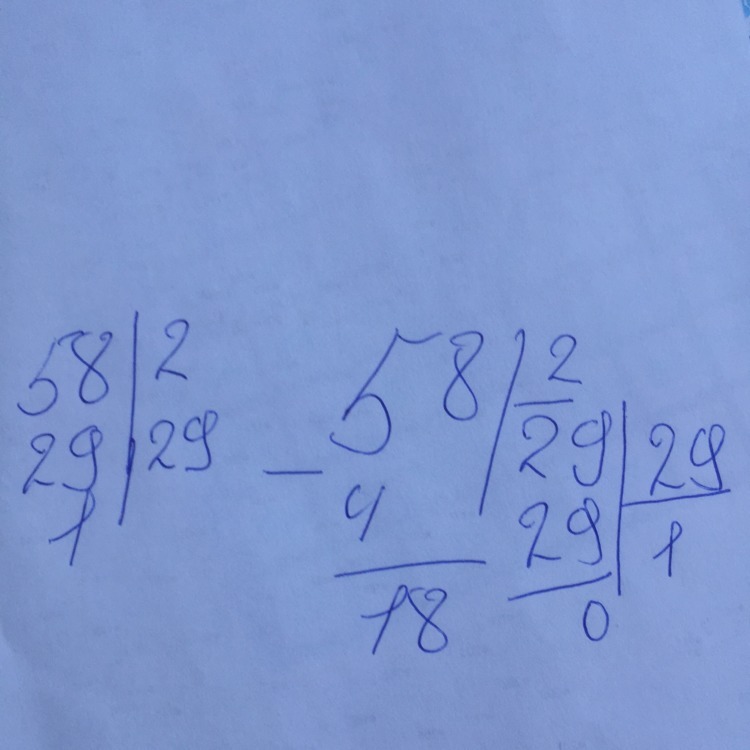 58 | 2
29 | 29
1
58 | 2
29 | 29
- 4
29 | 1
18
0